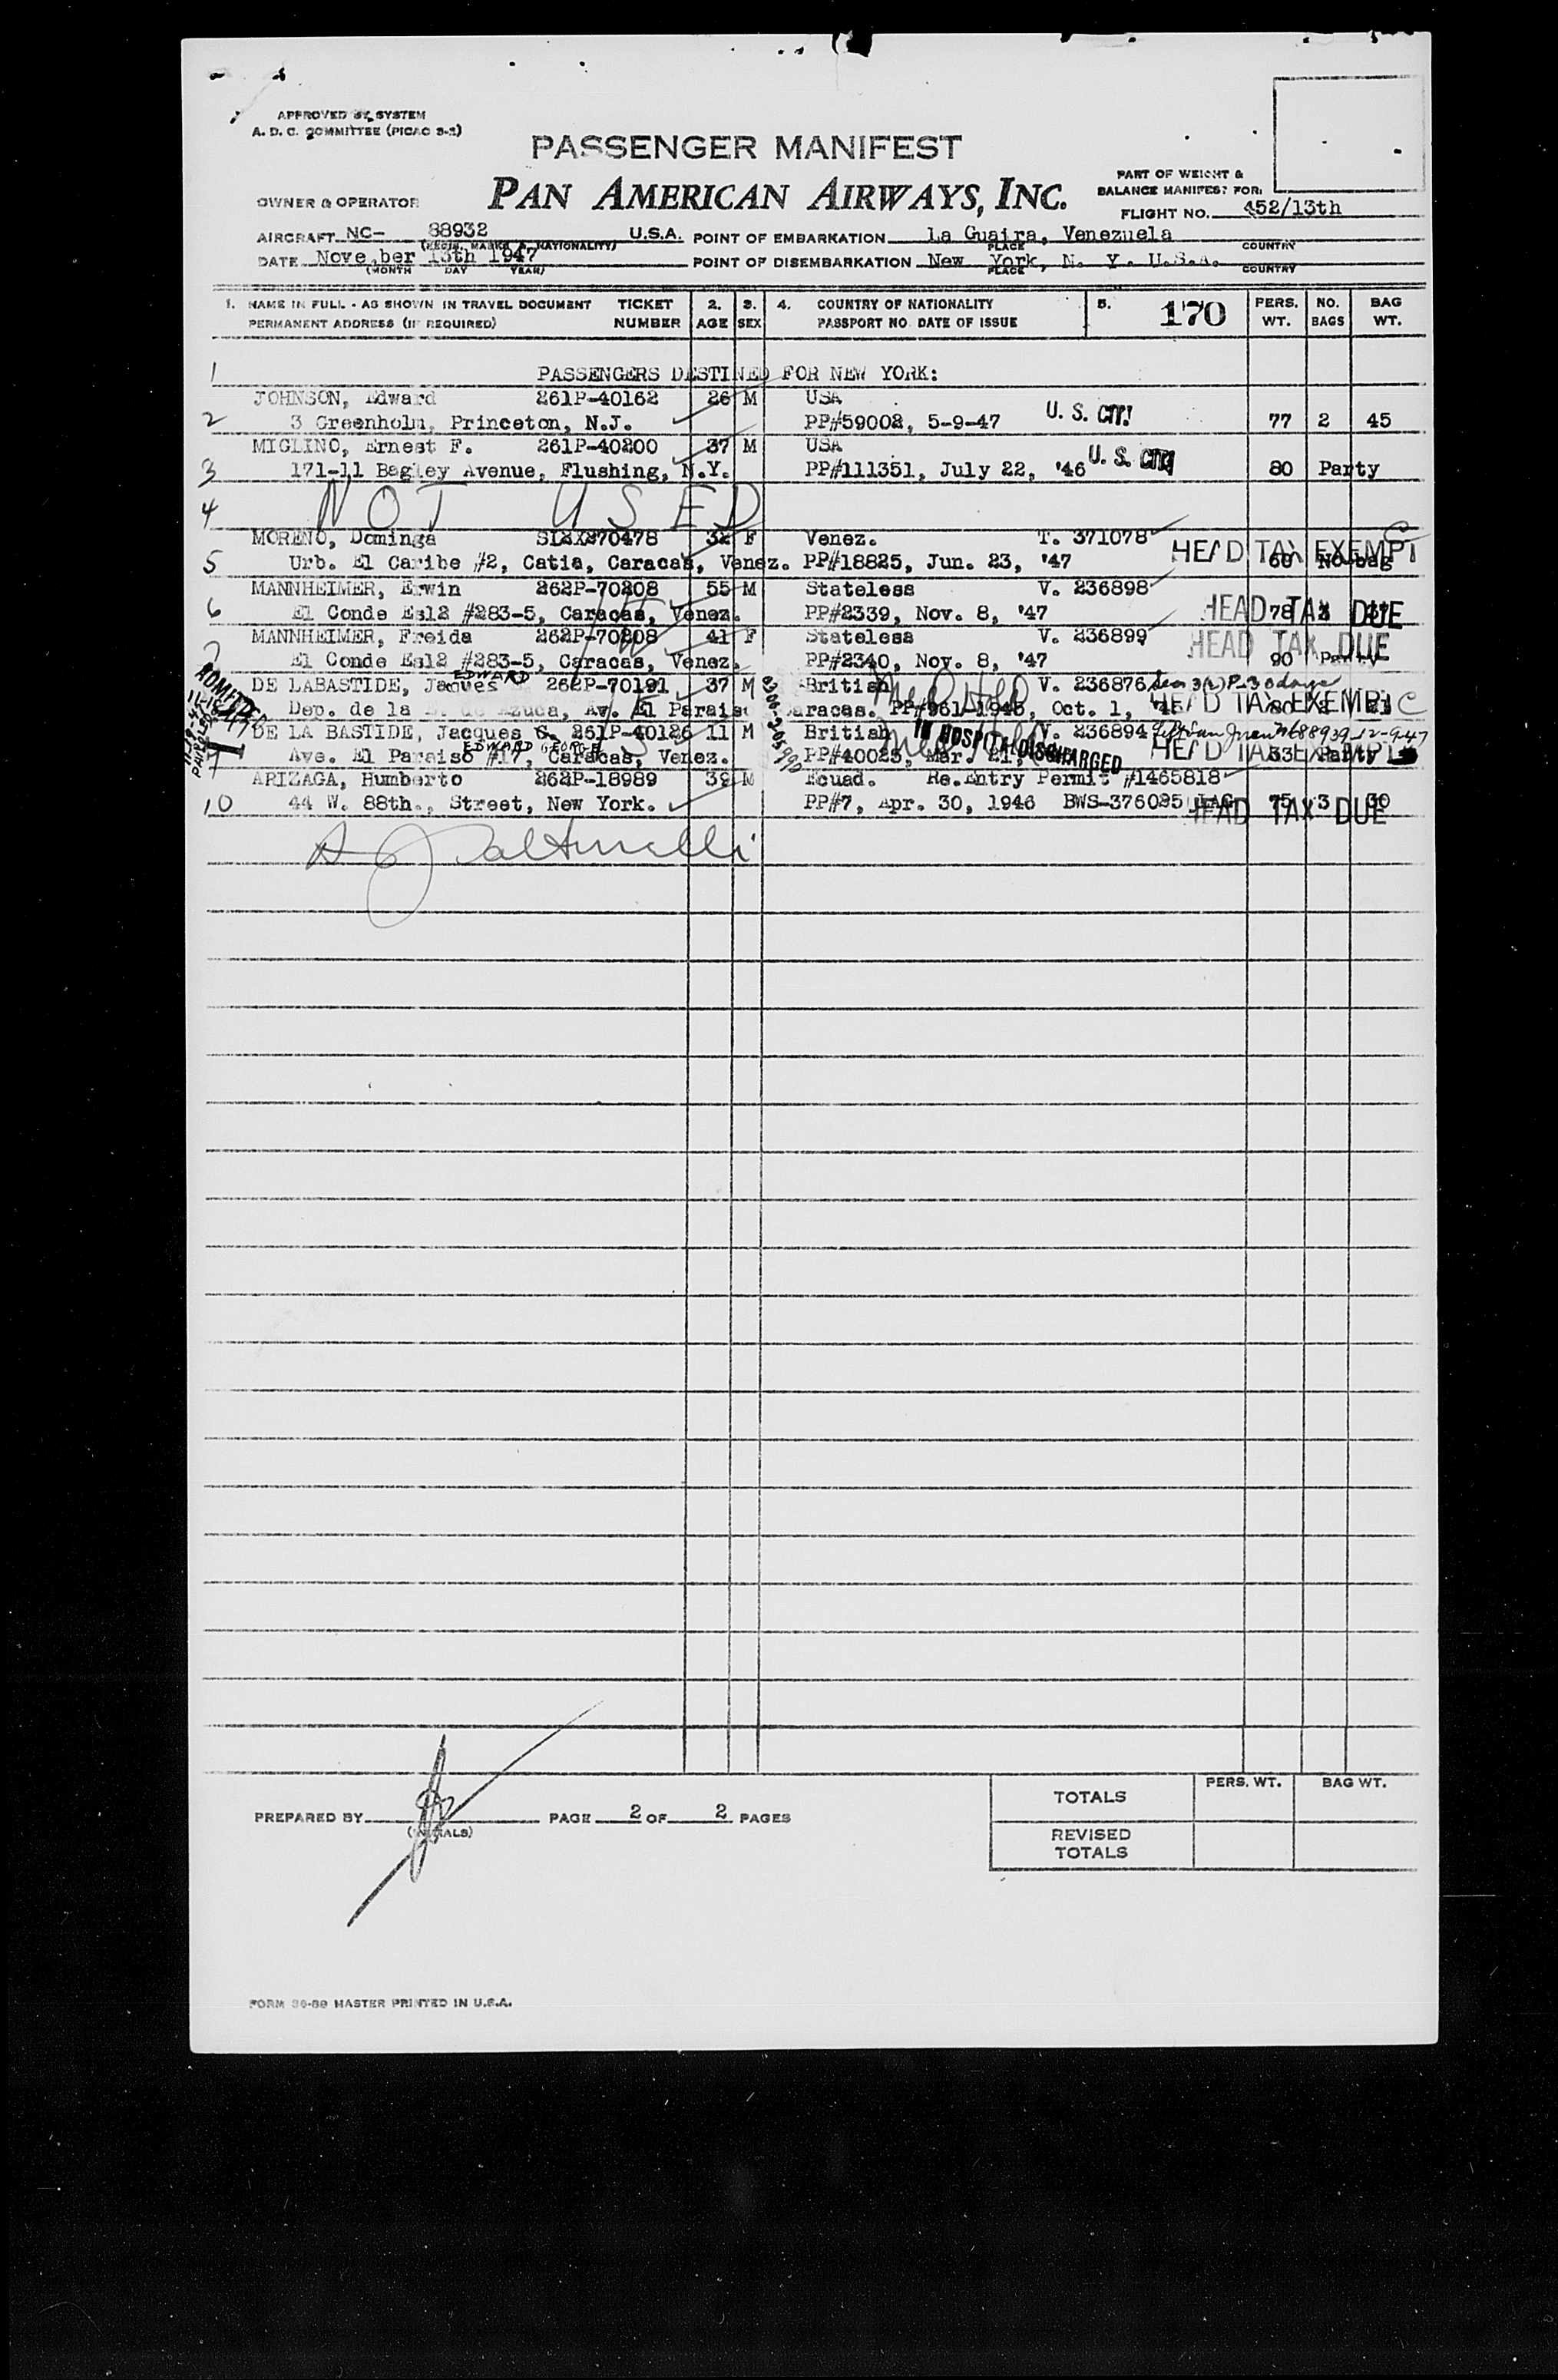 APPROVED BY SYSTEM
A. D. C. COMMITTEE (PICAO 9-2)
PASSENGER MANIFEST
PAN AMERICAN AIRWAYS, INC.
PART OF WEIGHT &
BALANCE MANIFEST FOR:
OWNER & OPERATOR
FLIGHT NO. 452/13th
AIRCRAFT NC- 88932 U.S.A. POINT OF EMBARKATION La Guaira, Venezuela
(REGIS. MARKS & NATIONALITY) PLACE COUNTRY
DATE Nove ber 13th 1947 POINT OF DISEMBARKATION New York, N. Y. U.S.A.
(MONTH DAY YEAR) PLACE COUNTRY
1. NAME IN FULL - AS SHOWN IN TRAVEL DOCUMENT TICKET 2. 3. 4. COUNTRY OF NATIONALITY 5. 170 PERS. NO. BAG
PERMANENT ADDRESS (IF REQUIRED) NUMBER AGE SEX PASSPORT NO. DATE OF ISSUE WT. BAGS WT.
1 PASSENGERS DESTINED FOR NEW YORK:
JOHNSON, Edward 261P-40162 26 M USA
2 3 Greenholm, Princeton, N.J. PP#59002, 5-9-47 U. S. CIT! 77 2 45
MIGLINO, Ernest F. 261P-40200 37 M USA
3 171-11 Bagley Avenue, Flushing, N.Y. PP#111351, July 22, '46 U. S. CIT 80 Party
4 NOT USED
MORENO, Dominga 70478 32 F Venez. T. 371078
5 Urb. El Caribe #2, Catia, Caracas, Venez. PP#18825, Jun. 23, '47 HEAD TAX EXEMPT 60 No bag
MANNHEIMER, Erwin 262P-70208 55 M Stateless V. 236898
6 El Conde Esl2 #283-5, Caracas, Venez. PP#2339, Nov. 8, '47 HEAD TAX DUE 78
MANNHEIMER, Freida 262P-70208 41 F Stateless V. 236899
El Conde Esl2 #283-5, Caracas, Venez. PP#2340, Nov. 8, '47 HEAD TAX DUE 90 Party
EDWARD
DE LABASTIDE, Jaques 262P-70191 37 M British V. 236876 Sec 3(2) P-30 days
ADMITTED
Dep. de la Azuca, Av. El Paraiso Caracas. Oct. 1, HEAD TAX EXEMPT C
Med Hold
DE LA BASTIDE, Jacques G. 261P-40126 11 M British V. 236894 12-9-47
EDWARD GEORGE
IN HOSPITAL DISCHARGED
Ave. El Paraiso #17, Caracas, Venez. PP#40025, Mar. 21, HEAD TAX EXEMPT 33 Party
ARIZAGA, Humberto 262P-18989 39 M Ecuad. Re.Entry Permit #1465818
10 44 W. 88th., Street, New York. PP#7, Apr. 30, 1946 BWS-376095 HEAD TAX DUE 75 3 30
PREPARED BY PAGE 2 OF 2 PAGES
(INITIALS)
PERS. WT. BAG WT.
TOTALS
REVISED
TOTALS
FORM 36-89 MASTER PRINTED IN U.S.A.